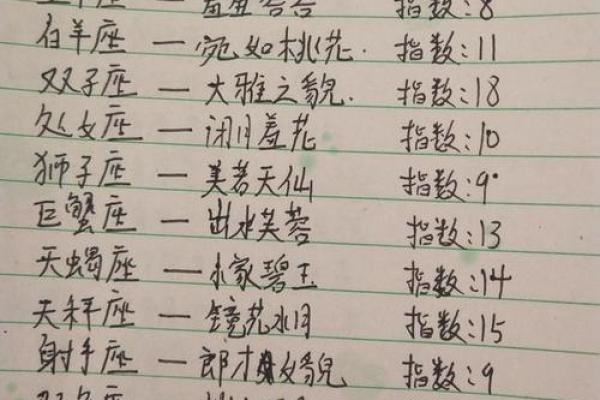 指数:8
白羊座 — 宛如桃花. 指数:11
双子座 — 大雅之貌. 指数:18
处女座 — 闭月羞花 指数:10
狮子座 — 美若天仙 指数:9
巨蟹座 — 出水芙蓉 指数:13
天蝎座 — 小家碧玉 指数:14
天秤座 — 镜花水月 指数:15
射手座 — 郎才女貌 指数:9